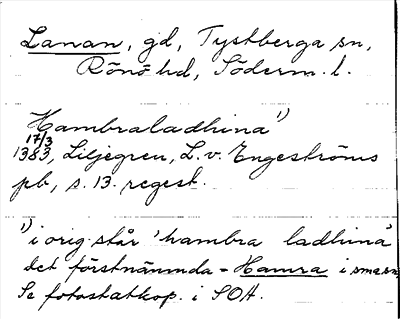 Lanan, gd, Tystberga sn,
Rönö hd, Söderm. l.
Hambraladhina¹⁾
17/3
1383, Liljegren, L. v. Engeströms
pb, s. 13. regest.
¹⁾ i orig. står 'hambra ladhina'
det förstnämnda = Hamra i sma sn,
Se fotostatkop. i SOA.